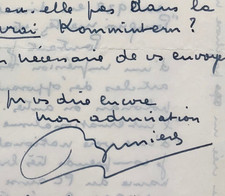 elle pas dans la
vrai Kommintern?
nécessaire de vs envoye
p vs dire encore
mon admiration